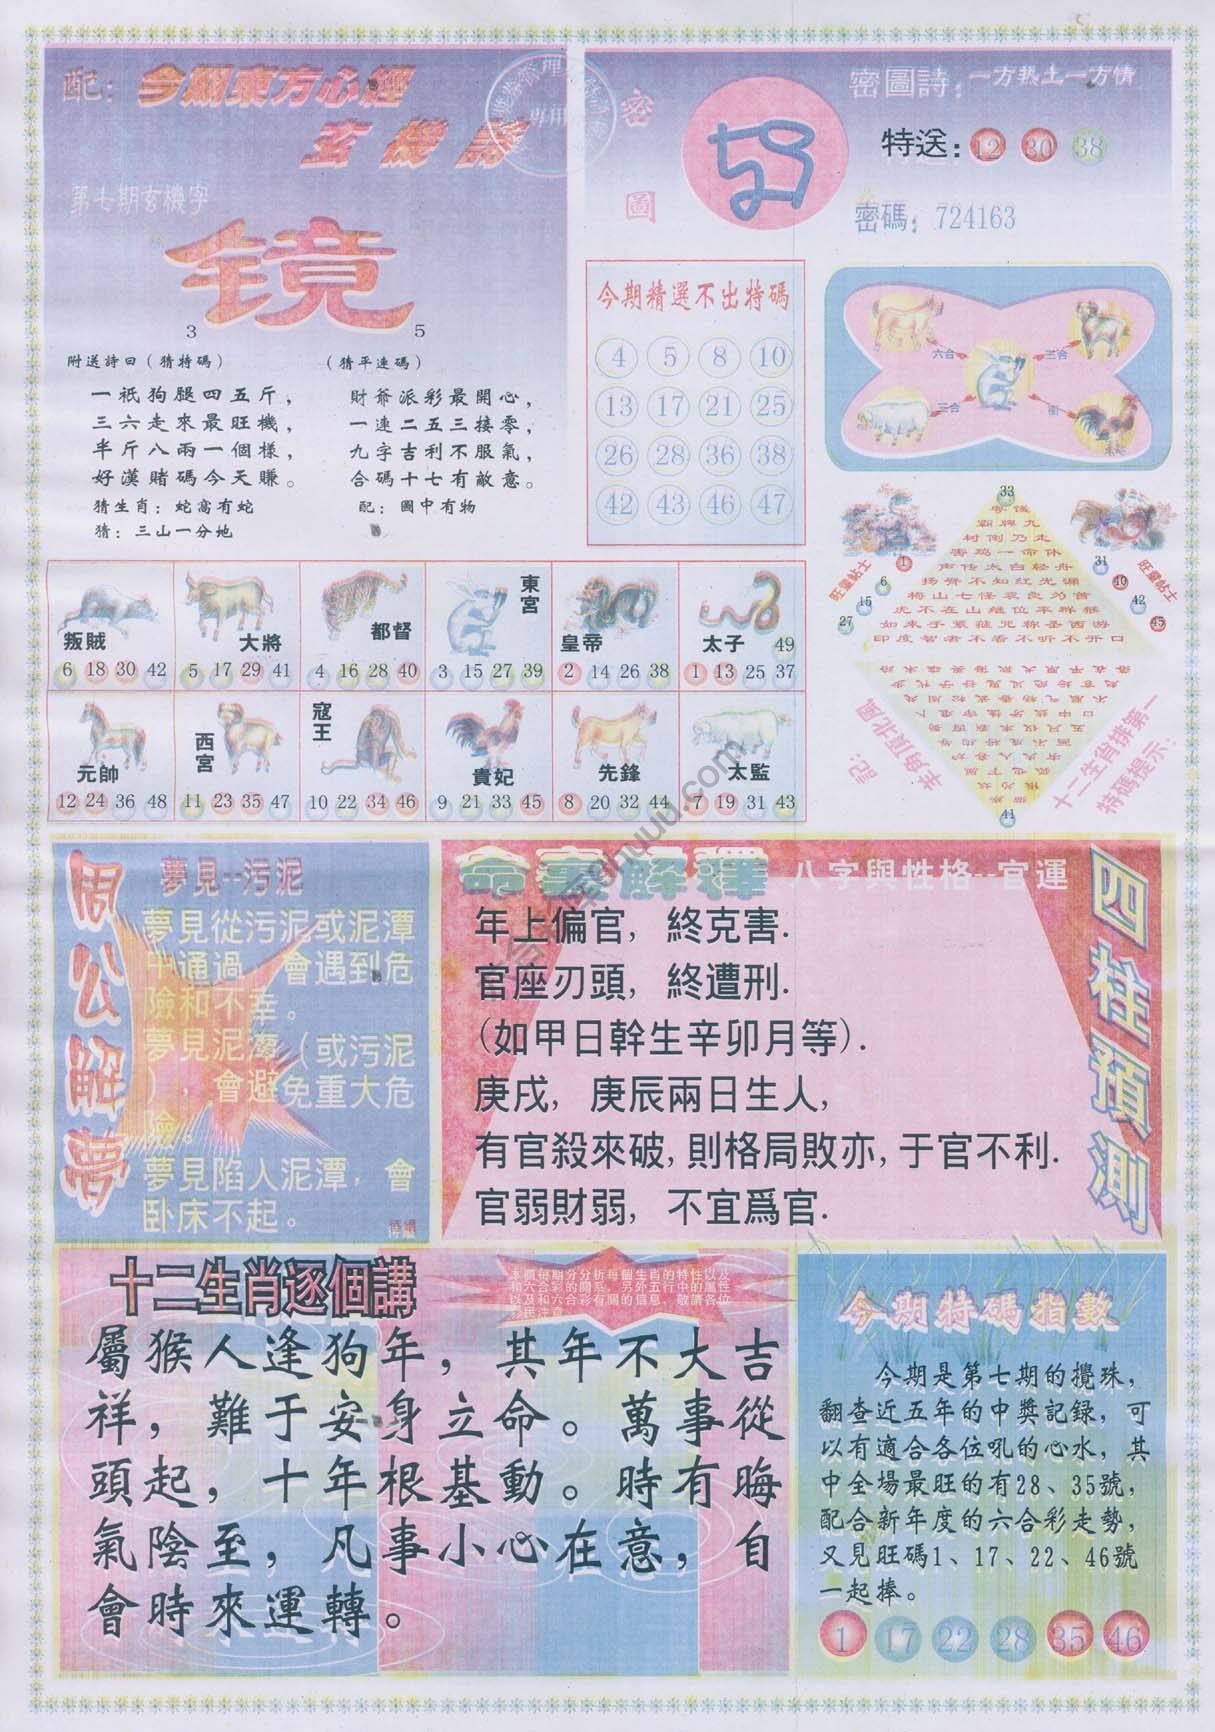 配：今期東方心經
玄機詩
第七期玄機字
镜
3 5
附送詩曰（猜特碼）
一衹狗腿四五斤，
三六走來最旺機，
半斤八兩一個樣，
好漢賭碼今天賺。
猜生肖：蛇窩有蛇
猜：三山一分地
（猜平連碼）
財爺派彩最開心，
一連二五三接零，
九字吉利不服氣，
合碼十七有敵意。
配：圖中有物
密圖
密圖詩：一方熱土一方情
特送：12 30 38
密碼：724163
今期精選不出特碼
4 5 8 10
13 17 21 25
26 28 36 38
42 43 46 47
六合 三合
三合 衝
33
霸牌九
树倒乃走
害鸡一命休
声传太白轻舟
扬臂不知红光漏
梅山七怪袁良为首
虎不在山继位本群猴
印度智者不看不听不开口
旺童帖士
1 6 15 27
旺童帖士
31 40 42 45
41
記：羊角頂北風
特碼提示：
十二生肖排第一
叛賊
6 18 30 42
大將
5 17 29 41
都督
4 16 28 40
東宮
3 15 27 39
皇帝
2 14 26 38
太子 49
1 13 25 37
元帥
12 24 36 48
西宮
11 23 35 47
寇王
10 22 34 46
貴妃
9 21 33 45
先鋒
8 20 32 44
太監
7 19 31 43
周公解夢
夢見--污泥
夢見從污泥或泥潭
中通過，會遇到危
險和不幸。
夢見泥濘（或污泥
），會避免重大危
險。
夢見陷人泥潭，會
卧床不起。
待續
命裏解釋 八字與性格--官運
四柱預測
年上偏官，終克害.
官座刃頭，終遭刑.
(如甲日幹生辛卯月等).
庚戌，庚辰兩日生人,
有官殺來破,則格局敗亦,于官不利.
官弱財弱，不宜爲官.
十二生肖逐個講
本圖每期分分析每個生肖的特性以及
和六合彩的關系，另外五行中的屬性
以及和六合彩有關的信息，敬請各位
彩民注意
屬猴人逢狗年，其年不大吉
祥，難于安身立命。萬事從
頭起，十年根基動。時有晦
氣陰至，凡事小心在意，自
會時來運轉。
今期特碼指數
今期是第七期的攪珠，
翻查近五年的中獎記録，可
以有適合各位吼的心水，其
中全場最旺的有28、35號，
配合新年度的六合彩走勢，
又見旺碼1、17、22、46號
一起捧。
1 17 22 28 35 46